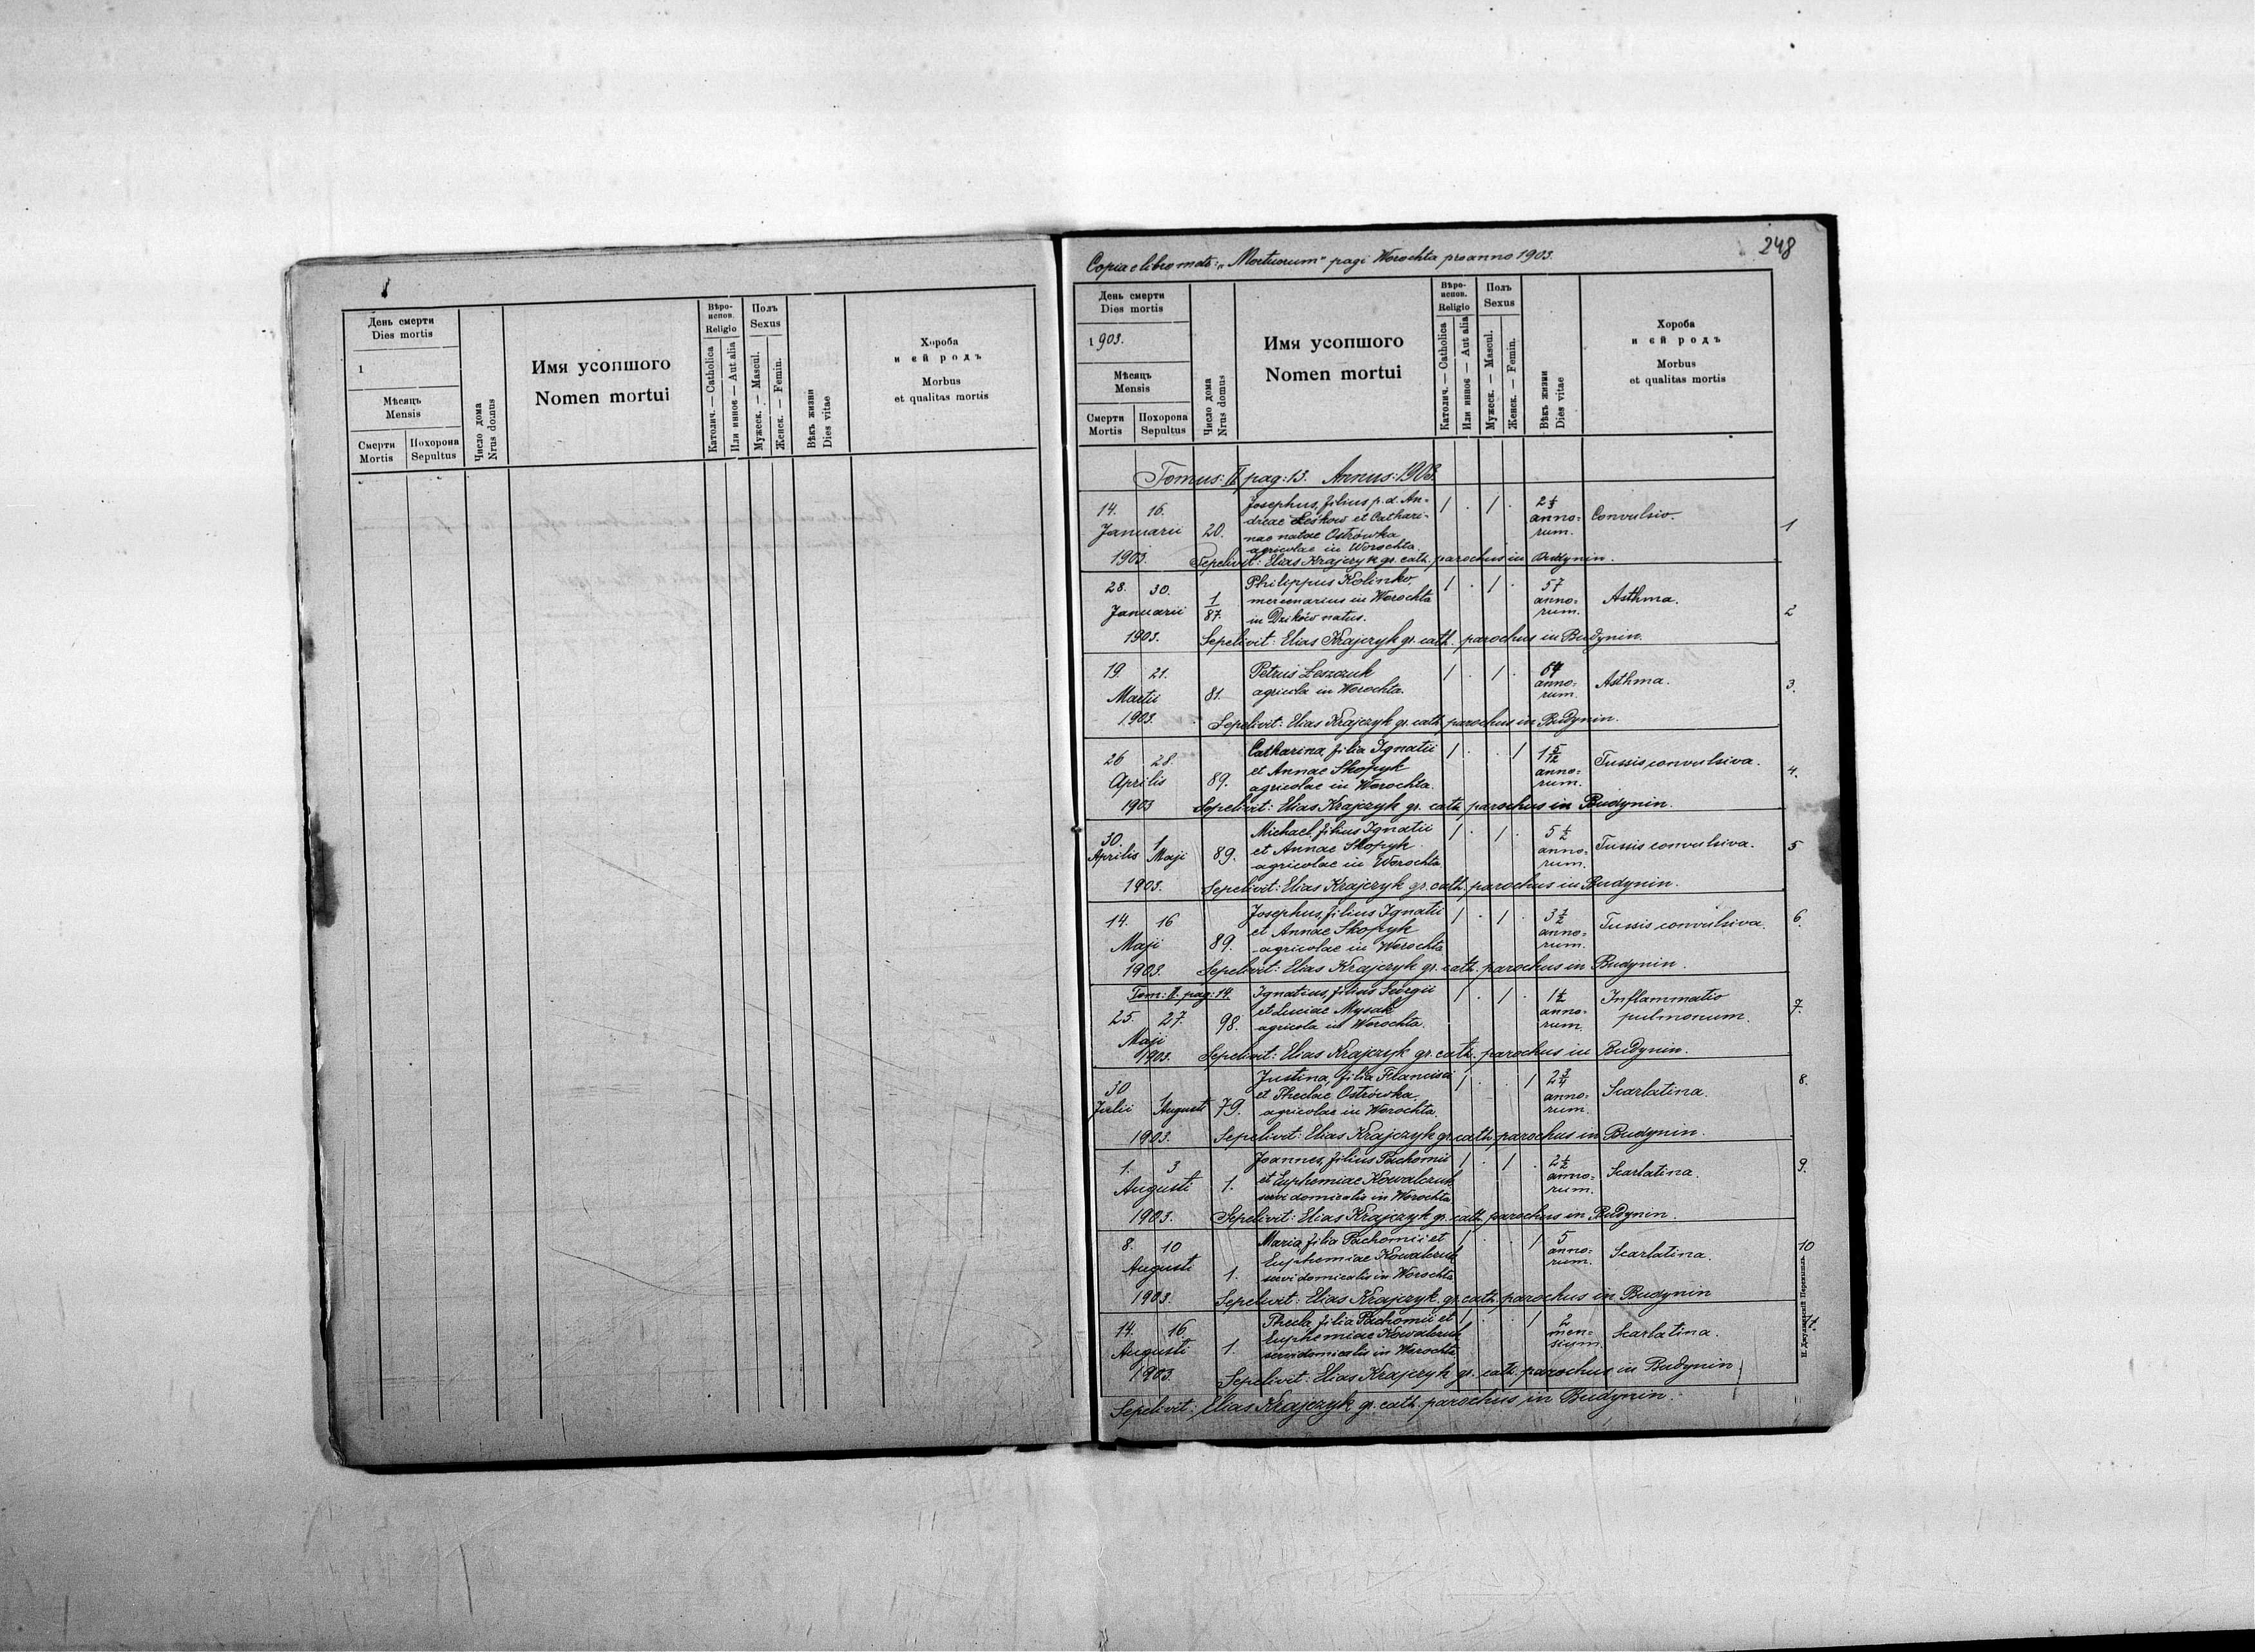 День смерти
Dies mortis
1
Мѣсяцъ
Mensis
Смерти
Mortis
Похорона
Sepultus
Число дома
Nrus domus
Имя усопшого
Nomen mortui
Вѣро-
испов.
Religio
Католич. — Catholica
Или инное — Aut alia
Полъ
Sexus
Мужеск. — Mascul.
Женск. — Femin.
Вѣкъ жизни
Dies vitae
Хороба
и єй родъ
Morbus
et qualitas mortis
248
Copia e libro metr: „Mortuorum" pagi Worochta pro anno 1903.
День смерти
Dies mortis
1903.
Мѣсяцъ
Mensis
Смерти
Mortis
Похорона
Sepultus
Число дома
Nrus domus
Имя усопшого
Nomen mortui
Вѣро-
испов.
Religio
Католич. — Catholica
Или инное — Aut alia
Полъ
Sexus
Мужеск. — Mascul.
Женск. — Femin.
Вѣкъ жизни
Dies vitae
Хороба
и єй родъ
Morbus
et qualitas mortis
Tomus: II pag: 13. Annus: 1903.
14. 16. Januarii 20.
Josephus, filius p. d. An-
dreae Leśkow et Cathari-
nae natae Ostrówka
agricolae in Worochta
/ . / . anno-
rum. Convulsio. 1
1903. Sepelivit: Elias Krajczyk gr. cath. parochus in Budynin.
28. 30. Januarii 1/87.
Philippus Kolinko,
mercenarius in Worochta
in Dzików natus.
/ . / . 57 anno-
rum. Asthma. 2
1903. Sepelivit: Elias Krajczyk gr. cath. parochus in Budynin.
19. 21. Martii 81.
Petrus Leszczuk
agricola in Worochta.
/ . / . 64 anno-
rum. Asthma. 3.
1903. Sepelivit: Elias Krajczyk gr. cath. parochus in Budynin.
26 28. Aprilis 89.
Catharina, filia Ignatii
et Annae Skopyk
agricolae in Worochta.
/ . . / 1 5/12 anno-
rum. Tussis convulsiva. 4.
1903 Sepelivit: Elias Krajczyk gr. cath. parochus in Budynin.
30. Aprilis 1 Maji 89.
Michael, filius Ignatii
et Annae Skopyk
agricolae in Worochta
/ . / . 5 1/2 anno-
rum. Tussis convulsiva. 5
1903. Sepelivit: Elias Krajczyk gr. cath. parochus in Budynin.
14. 16 Maji 89.
Josephus, filius Ignatii
et Annae Skopyk
agricolae in Worochta
/ . / . 3 1/2 anno-
rum. Tussis convulsiva. 6.
1903. Sepelivit: Elias Krajczyk gr. cath. parochus in Budynin.
Tom: II. pag: 14.
25. 27. Maji 98.
Ignatius, filius Georgii
et Luciae Mysak
agricola in Worochta.
/ . / . 1 1/2 anno-
rum. Inflammatio
pulmonum. 7.
1903. Sepelivit: Elias Krajczyk gr. cath. parochus in Budynin.
30 Julii 1 Augusti 79.
Justina, filia Francisci
et Theclae Ostrówska,
agricolae in Worochta.
/ . . / 2 3/4 anno-
rum. Scarlatina. 8.
1903. Sepelivit: Elias Krajczyk gr. cath. parochus in Budynin.
1. 3 Augusti 1.
Joannes, filius Pachomii
et Euphemiae Kowalczuk
servi domicalis in Worochta
/ . / . 2 1/2 anno-
rum. Scarlatina. 9.
1903. Sepelivit: Elias Krajczyk gr. cath. parochus in Budynin.
8. 10 Augusti 1.
Maria, filia Pachomii et
Euphemiae Kowalczuk
servi domicalis in Worochta
/ . . / 5 anno-
rum. Scarlatina. 10
1903. Sepelivit: Elias Krajczyk gr. cath. parochus in Budynin
14. 16. Augusti 1.
Thecla, filia Pachomii et
Euphemiae Kowalczuk
servi domicalis in Worochta
/ . . / 2 men-
sium. Scarlatina. 11.
1903. Sepelivit: Elias Krajczyk gr. cath. parochus in Budynin
Sepelivit: Elias Krajczyk gr. cath. parochus in Budynin.